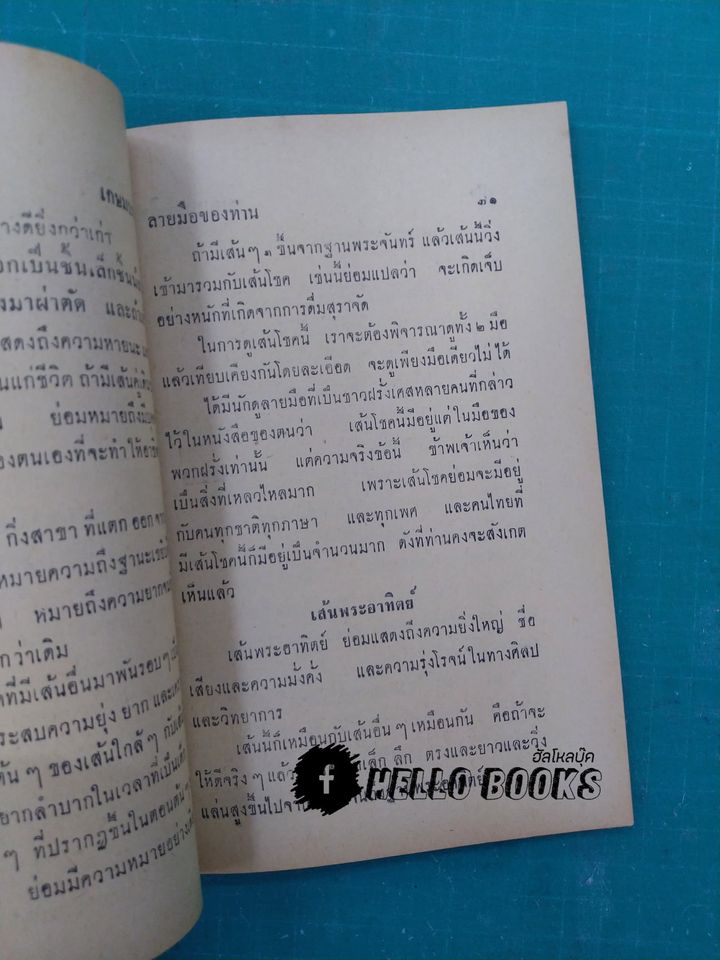 างดียิ่งกว่าเก่า
อกเป็นชั้นเล็กชั้นน้อย
งมาผ่าตัด และถ้า
สดงถึงความหายนะ
นแก่ชีวิต ถ้ามีเส้นคู่
ย่อมหมายถึง
องตนเองที่จะทำให้
กิ่งสาขา ที่แตก ออก จาก
หมายความถึงฐานะ
ๆ หมายถึงความยากจน
กว่าเดิม
ดที่มีเส้นอื่นมาพันรอบๆ
ระสบความยุ่ง ยาก และ
ต้น ๆ ของเส้นใกล้ๆ กับ
ยากลำบากในเวลาที่เป็นเด็ก
ๆ ที่ปรากฏขึ้นในตอนต้นๆ
ย่อมมีความหมายอย่าง
ลายมือของท่าน ๓๑
ถ้ามีเส้น ๆ ๑ ขึ้นจากฐานพระจันทร์ แล้วเส้นนี้วิ่ง
เข้ามารวมกับเส้นโชค เช่นนี้ย่อมแปลว่า จะเกิดเจ็บ
อย่างหนักที่เกิดจากการดื่มสุราจัด
ในการดูเส้นโชคนี้ เราจะต้องพิจารณาดูทั้ง ๒ มือ
แล้วเทียบเคียงกันโดยละเอียด จะดูเพียงมือเดียวไม่ได้
ได้มีนักดูลายมือที่เป็นชาวฝรั่งเศสหลายคนที่กล่าว
ไว้ในหนังสือของตนว่า เส้นโชคนี้มีอยู่แต่ในมือของ
พวกฝรั่งเท่านั้น แต่ความจริงข้อนี้ ข้าพเจ้าเห็นว่า
เป็นสิ่งที่เหลวไหลมาก เพราะเส้นโชคย่อมจะมีอยู่
กับคนทุกชาติทุกภาษา และทุกเพศ และคนไทยที่
มีเส้นโชคนี้ก็มีอยู่เป็นจำนวนมาก ดังที่ท่านคงจะสังเกต
เห็นแล้ว
เส้นพระอาทิตย์
เส้นพระอาทิตย์ ย่อมแสดงถึงความยิ่งใหญ่ ชื่อ
เสียงและความมั่งคั่ง และความรุ่งโรจน์ในทางศิลป
และวิทยาการ
เส้นนี้ก็เหมือนกับเส้นอื่น ๆ เหมือนกัน คือถ้าจะ
ให้ดีจริง ๆ แล้ว เล็ก ลึก ตรงและยาวและวิ่ง
แล่นสูงขึ้นไปจาก พระอาทิตย์
ฮัลโหลบุ๊ค
f HELLO BOOKS